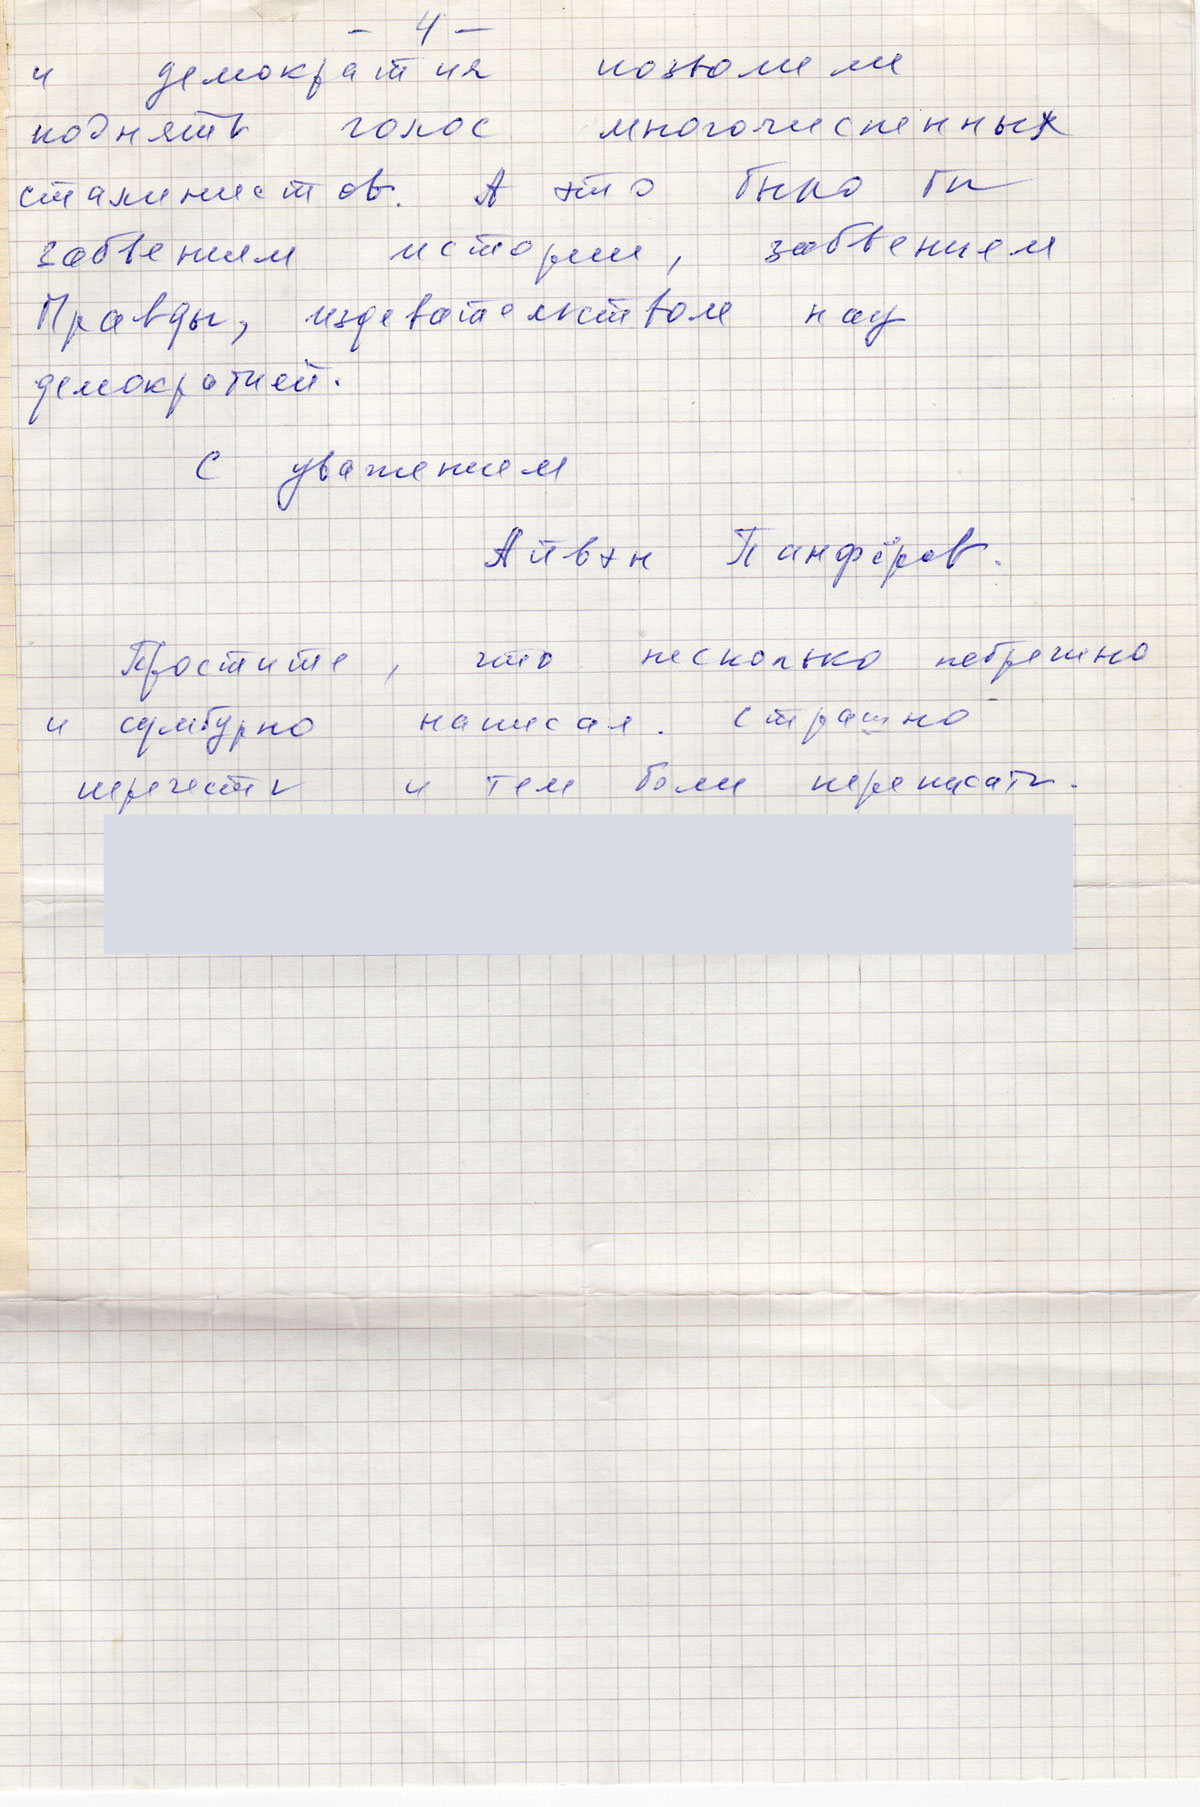 - 4 -
и демократия позволили
поднять голос многочисленных
сталинистов. А это было бы
забвением истории, забвением
Правды, издевательством над
демократией.
С уважением
Айвэн Панфёров.
Простите, что несколько небрежно
и сумбурно написал. Страшно
перечесть и тем боли переписать.